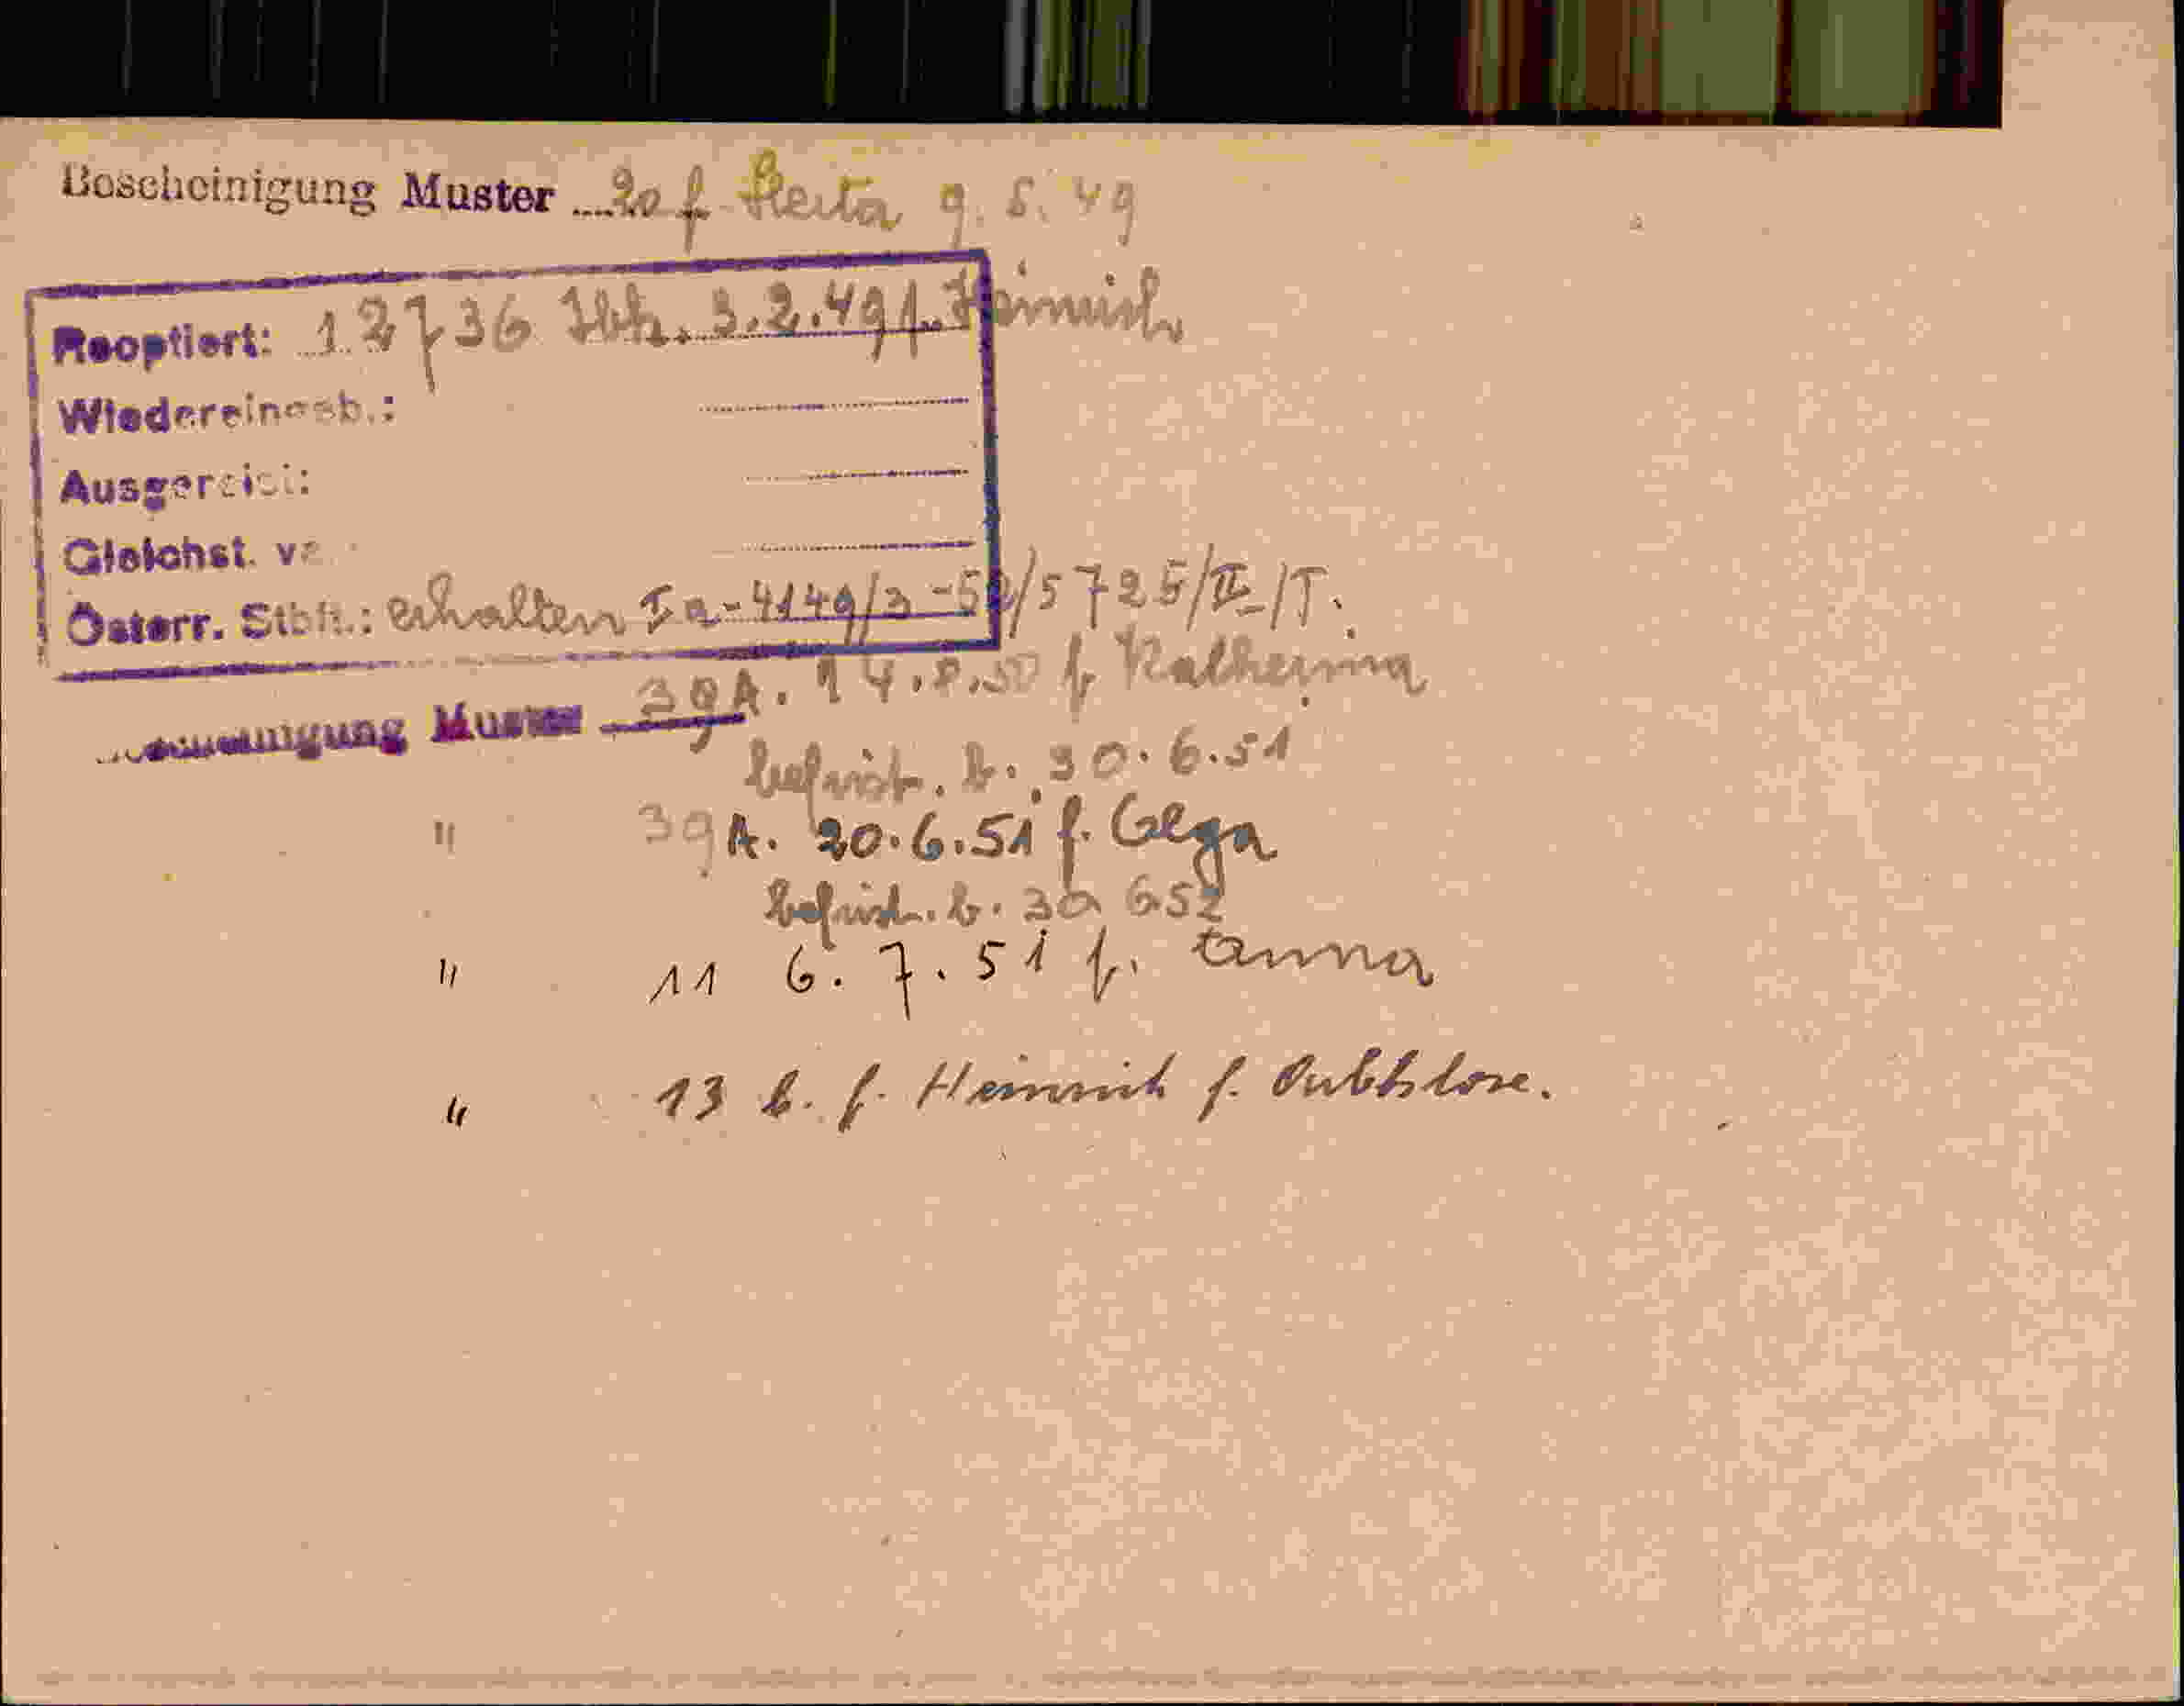 Bescheinigung Muster 20 f. Herta 9. 5. 49
Reoptiert: 12736 Ibk. 3.2.49 f. Heinrich
Wiedereingeb.:
Ausgereist:
Gleichst.
Österr. Stbft.: erhalten Ia-4149/3-52/5725/II/T.
Bescheinigung Muster 39A. 14.8.50 f. Katherina
befrist. b. 30.6.51
" 39A. 20.6.51 f. Olga
befrist. b. 30 6 52
" 11 6.7.51 f. Anna
" 13 b. f. Heinrich f.